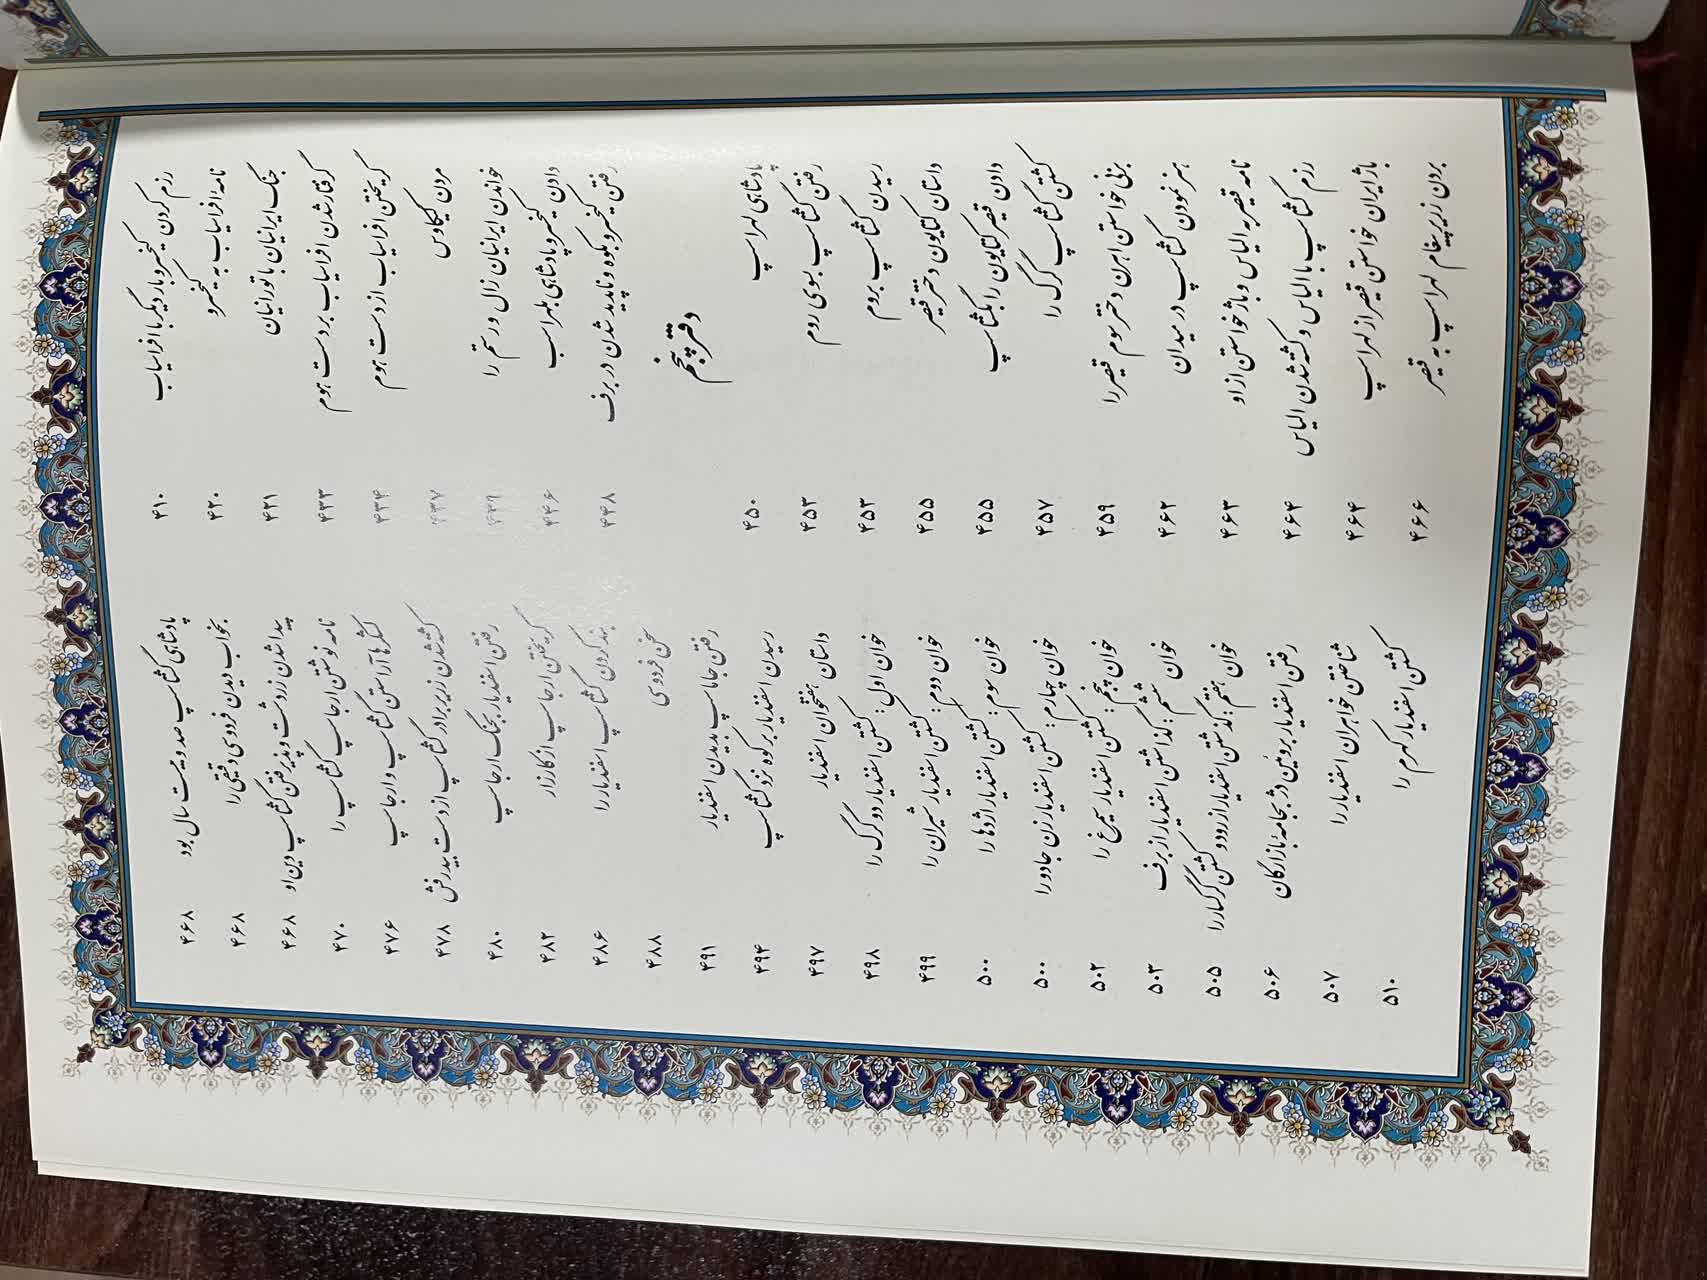 رزم کردن کیخسرو بار دیگر با افراسیاب ۴۱۰
نامه افراسیاب به کیخسرو ۴۲۰
جنگ ایرانیان با تورانیان ۴۲۱
گرفتار شدن افراسیاب بر دست هوم ۴۳۳
گریختن افراسیاب از دست هوم ۴۳۴
مردن کیکاوس ۴۳۷
خواندن ایرانیان زال و رستم را ۴۳۹
دادن کیخسرو پادشاهی بلهراسب ۴۴۶
رفتن کیخسرو بکوه و ناپدید شدن در برف ۴۴۸
دفتر پنجم
پادشاهی لهراسپ ۴۵۰
رفتن گشتاسپ بسوی روم ۴۵۳
رسیدن گشتاسپ بروم ۴۵۳
داستان کتایون دختر قیصر ۴۵۵
دادن قیصر کتایون را بگشتاسپ ۴۵۵
کشتن گشتاسپ گرگ را ۴۵۷
بزنی خواستن اهرن دختر سوم قیصر را ۴۵۹
هنر نمودن گشتاسپ در میدان ۴۶۲
نامه قیصر به الیاس و باژ خواستن از او ۴۶۳
رزم گشتاسپ با الیاس و کشته شدن الیاس ۴۶۴
باژ ایران خواستن قیصر از لهراسپ ۴۶۴
بردن زریر پیغام لهراسپ به قیصر ۴۶۶
پادشاهی گشتاسپ صد و بیست سال بود ۴۶۸
بخواب دیدن فردوسی دقیقی را ۴۶۸
پیدا شدن زردشت و پذیرفتن گشتاسپ دین او ۴۶۸
نامه نوشتن ارجاسپ گشتاسپ را ۴۷۰
لشکرها آراستن گشتاسپ و ارجاسپ ۴۷۶
کشته شدن زریر برادر گشتاسپ از دست بیدرفش ۴۷۸
رفتن اسفندیار بجنگ ارجاسپ ۴۸۰
گریختن ارجاسپ از کارزار ۴۸۲
بند کردن گشتاسپ اسفندیار را ۴۸۶
سخن فردوسی ۴۸۸
رفتن جاماسپ بدیدن اسفندیار ۴۹۱
رسیدن اسفندیار بر کوه نزد گشتاسپ ۴۹۴
داستان هفتخوان اسفندیار ۴۹۷
خوان اول: کشتن اسفندیار دو گرگ را ۴۹۸
خوان دوم: کشتن اسفندیار شیران را ۴۹۹
خوان سوم: کشتن اسفندیار اژدها را ۵۰۰
خوان چهارم: کشتن اسفندیار زن جادو را ۵۰۰
خوان پنجم: کشتن اسفندیار سیمرغ را ۵۰۲
خوان ششم: گذاشتن اسفندیار از برف ۵۰۳
خوان هفتم: گذشتن اسفندیار از رود و کشتن گرگسار را ۵۰۵
رفتن اسفندیار برویین دژ بجامه بازارگان ۵۰۶
شناختن خواهران اسفندیار را ۵۰۷
کشتن اسفندیار کهرم را ۵۱۰